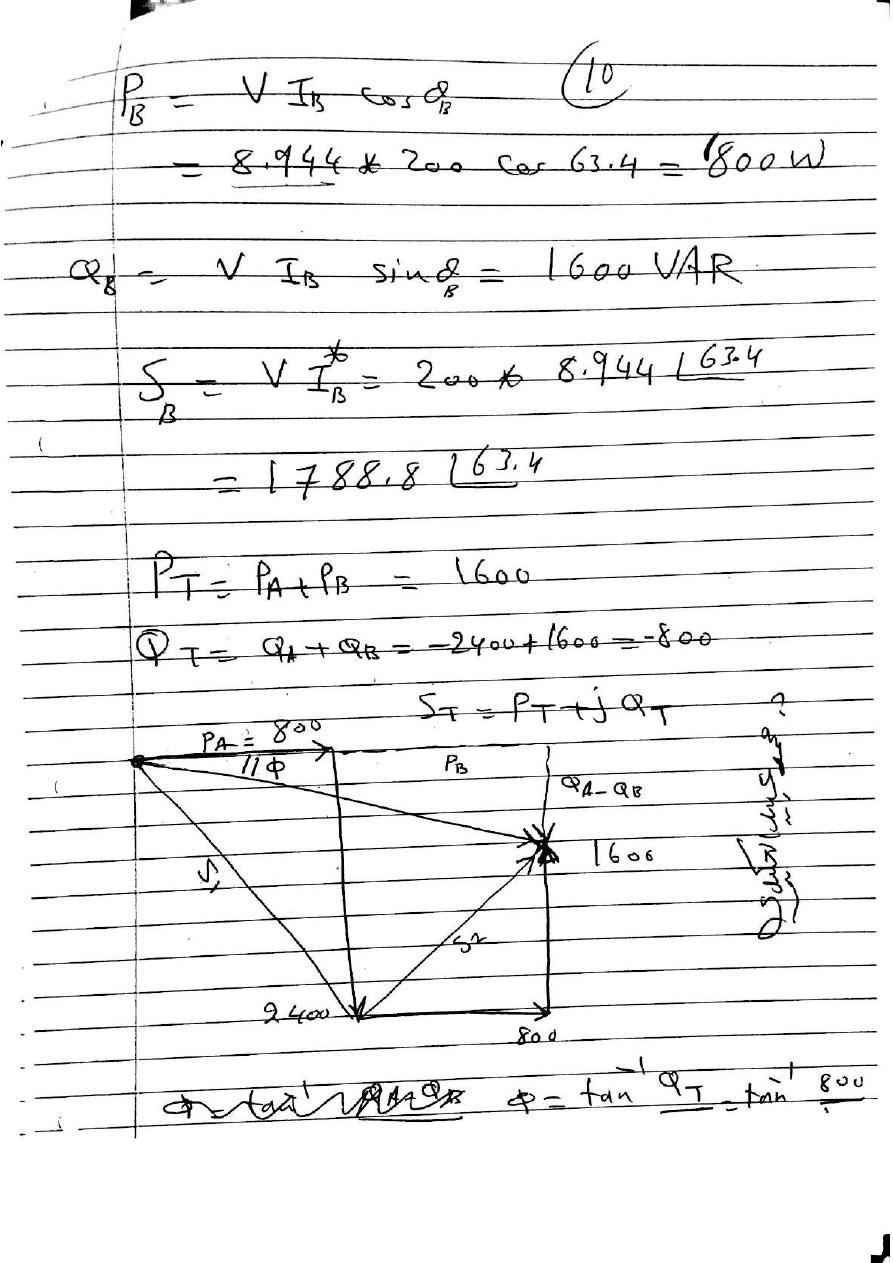 10
P_B = V I_B cos θ_B
= 8.944 * 200 cos 63.4 = 800 W
Q_B = V I_B sin θ_B = 1600 VAR
S_B = V I_B^* = 200 * 8.944 ∠63.4
= 1788.8 ∠63.4
P_T = P_A + P_B = 1600
Q_T = Q_A + Q_B = -2400 + 1600 = -800
S_T = P_T + j Q_T
P_A = 800
φ
P_B
Q_A - Q_B
1600
S_1
S_2
2400
800
φ = tan^-1 Q_T = tan^-1 800